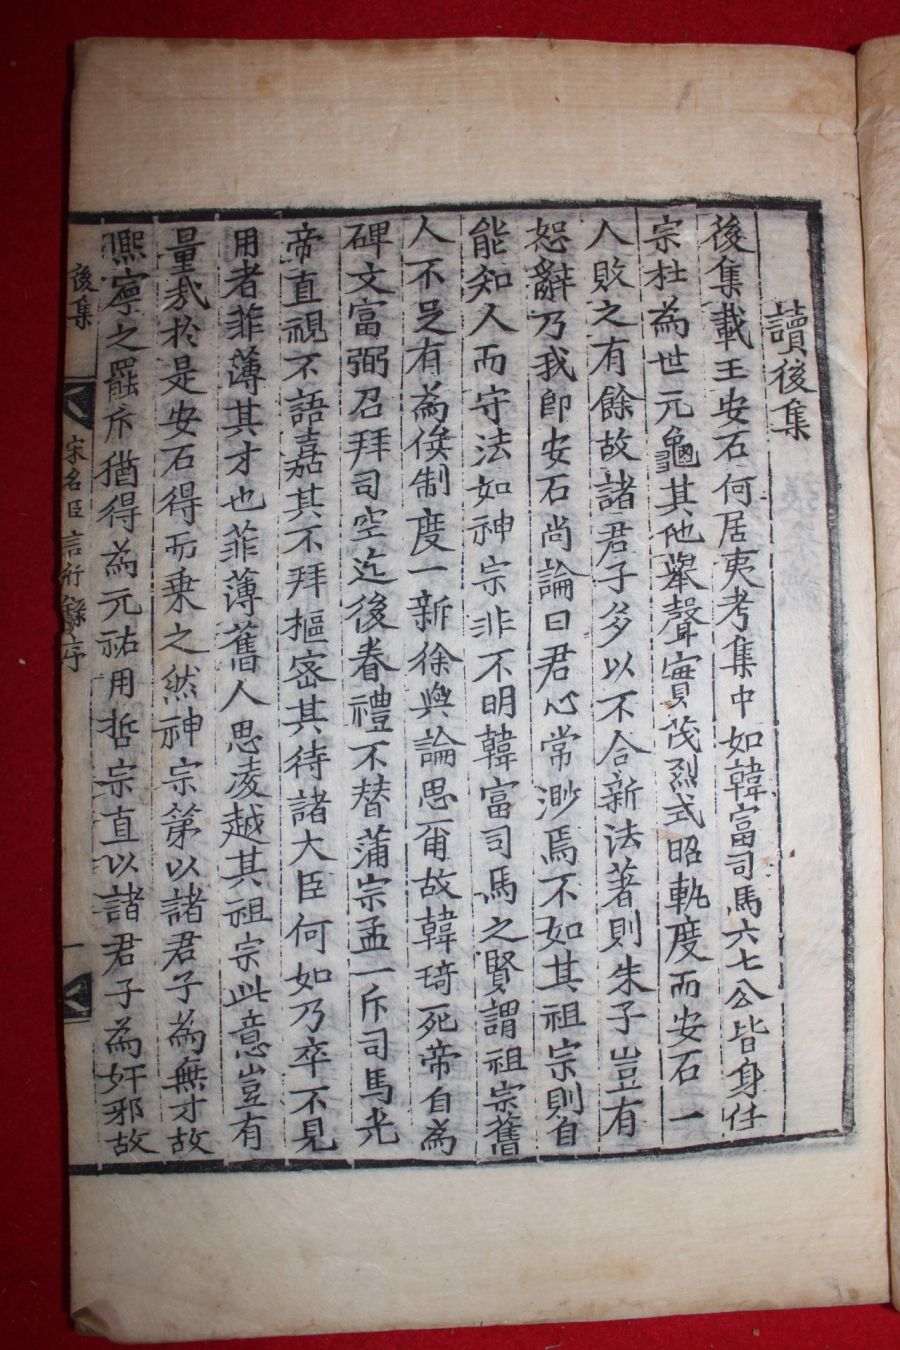 讀後集
後集載王安石何居夷考集中如韓富司馬六七公皆身任
宗社為世元龜其他舉聲實茂烈式昭軌度而安石一
人敗之有餘故諸君子多以不合新法著則朱子豈有
恕辭乃我卽安石尚論曰君心常渺焉不如其祖宗則自
能知人而守法如神宗非不明韓富司馬之賢謂祖宗舊
人不足有為俟制度一新徐與論思爾故韓琦死帝自為
碑文富弼召拜司空迄後眷禮不替蒲宗孟一斥司馬光
帝直視不語嘉其不拜樞密其待諸大臣何如乃卒不見
用者菲薄其才也菲薄舊人思凌越其祖宗此意豈有
量哉於是安石得而乗之然神宗第以諸君子為無才故
熙寧之罷斥猶得為元祐用哲宗直以諸君子為奸邪故
後集 宋名臣言行錄序 一